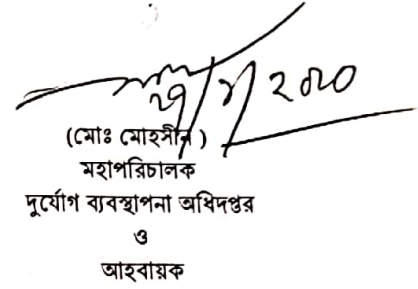 (মোঃ মোহসীন)
মহাপরিচালক
দুর্যোগ ব্যবস্থাপনা অধিদপ্তর
ও
আহবায়ক